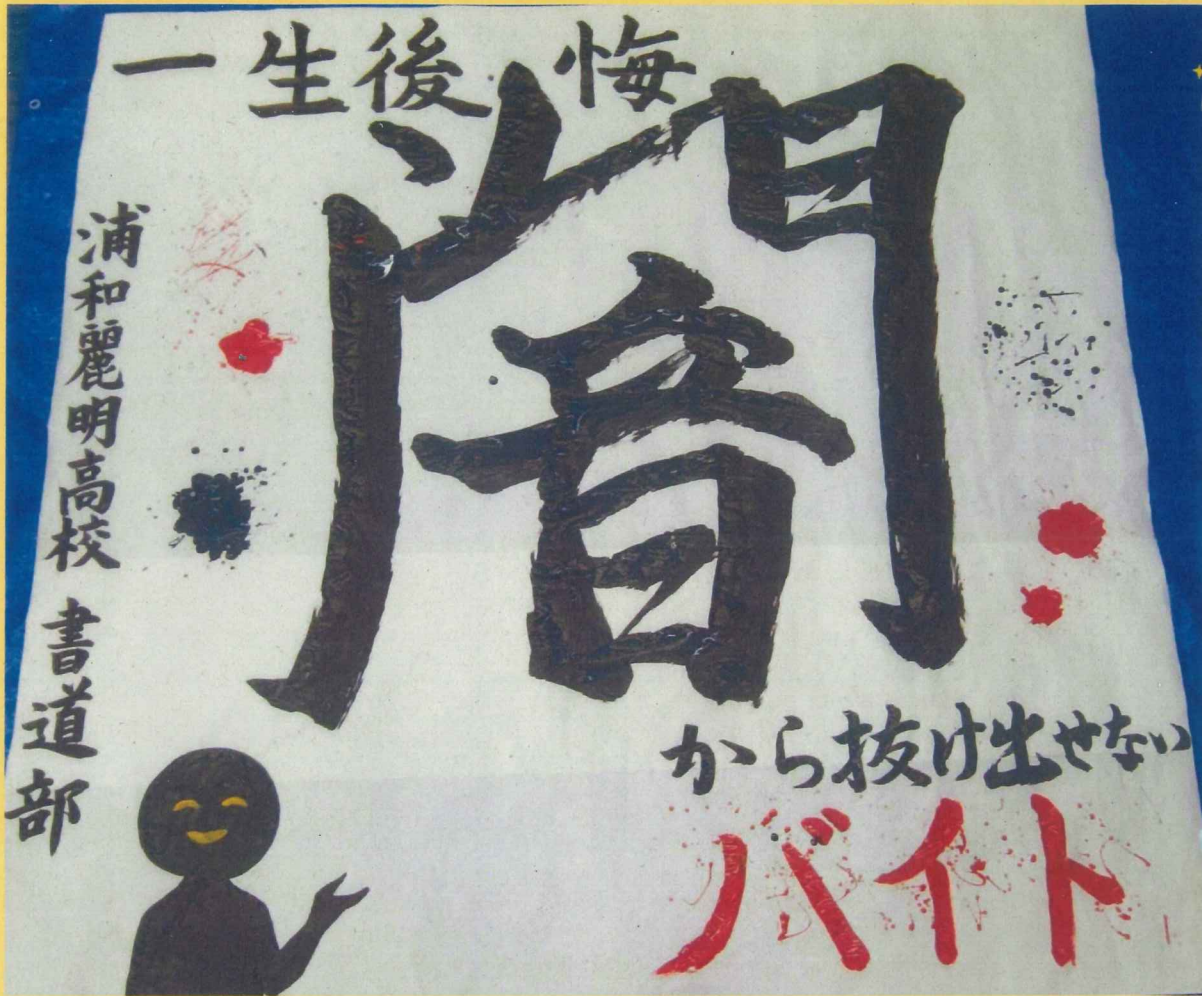 一生後悔
闇
から抜け出せない
バイト
浦和麗明高校 書道部